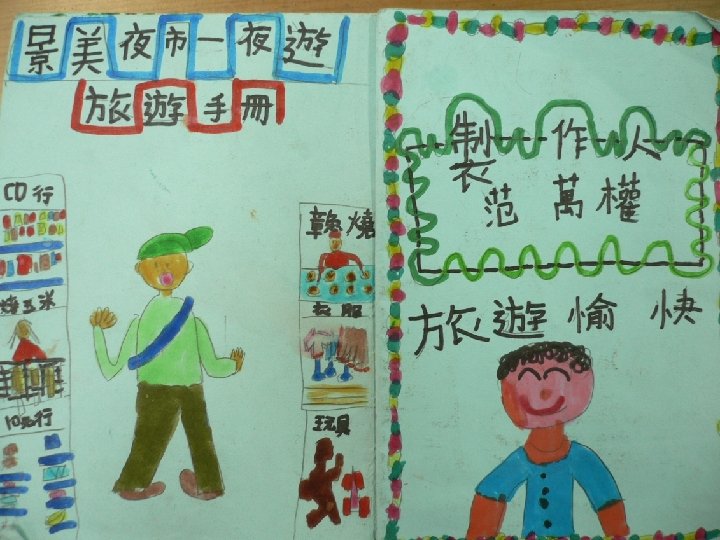 景美夜市一夜遊
旅遊手冊
CD行
燒玉米
10元行
章魚燒
衣服
玩具
製作人
范萬權
旅遊愉快